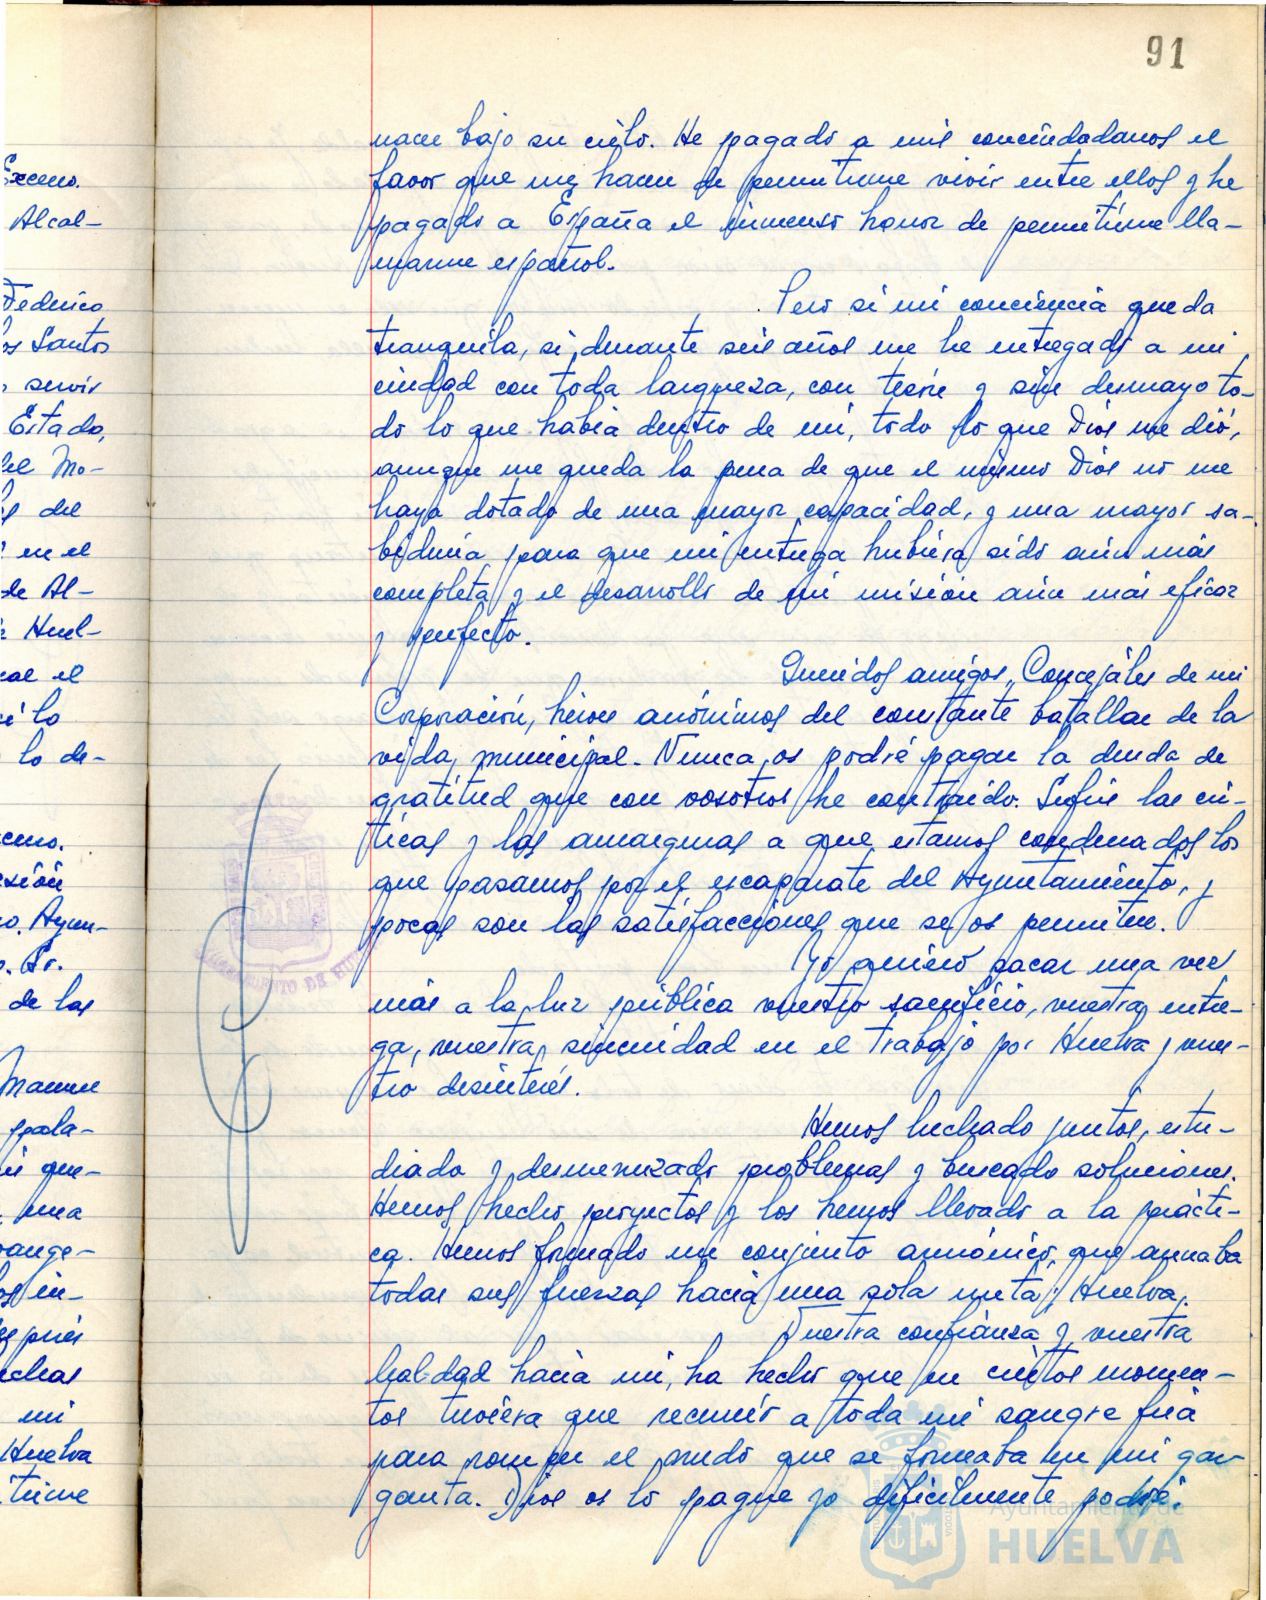 91
nacer bajo su cielo. He pagado a mis conciudadanos el
favor que me hacen de permitirme vivir entre ellos y he
pagado a España el inmenso honor de permitirme lla-
marme español.
Pero si mi conciencia queda
tranquila, si durante seis años me he entregado a mi
ciudad con toda largueza, con tesón y sin desmayo to-
do lo que había dentro de mi, todo lo que Dios me dió,
aunque me queda la pena de que el mismo Dios no me
haya dotado de una mayor capacidad, y una mayor sa-
biduria para que mi entrega hubiera sido aún más
completa y el desarrollo de mi misión aún más eficaz
y perfecto.
Queridos amigos, Concejales de mi
Corporación, héroes anónimos del constante batallar de la
vida municipal. Nunca os podré pagar la deuda de
gratitud que con vosotros he contraido. Sufrir las crí-
ticas y las amarguras a que estamos condenados los
que pasamos por el escaparate del Ayuntamiento, y
pocas son las satisfacciones que se os permiten.
Yo quiero sacar una vez
más a la luz pública vuestro sacrificio, vuestra entre-
ga, vuestra sinceridad en el trabajo por Huelva y vues-
tro desinterés.
Hemos luchado juntos, estu-
diado y desmenuzado problemas y buscado soluciones.
Hemos hecho proyectos y los hemos llevado a la prácti-
ca. Hemos formado un conjunto armónico, que aunaba
todas sus fuerzas hacia una sola meta: Huelva.
Vuestra confianza y vuestra
lealtad hacia mi, ha hecho que en ciertos momen-
tos tuviera que recurrir a toda mi sangre fría
para romper el nudo que se formaba en mi gar-
ganta. Dios os lo pague yo dificilmente podré.
Excmo.
Alcal-
Federico
os Santos
servir
Estado,
del Mo-
del
en el
de Al-
Huel-
el
lo
lo de-
Ayun-
Sr.
de las
pala-
que-
una
mi
Huelva
AYUNTAMIENTO DE
Ayuntamiento de
HUELVA